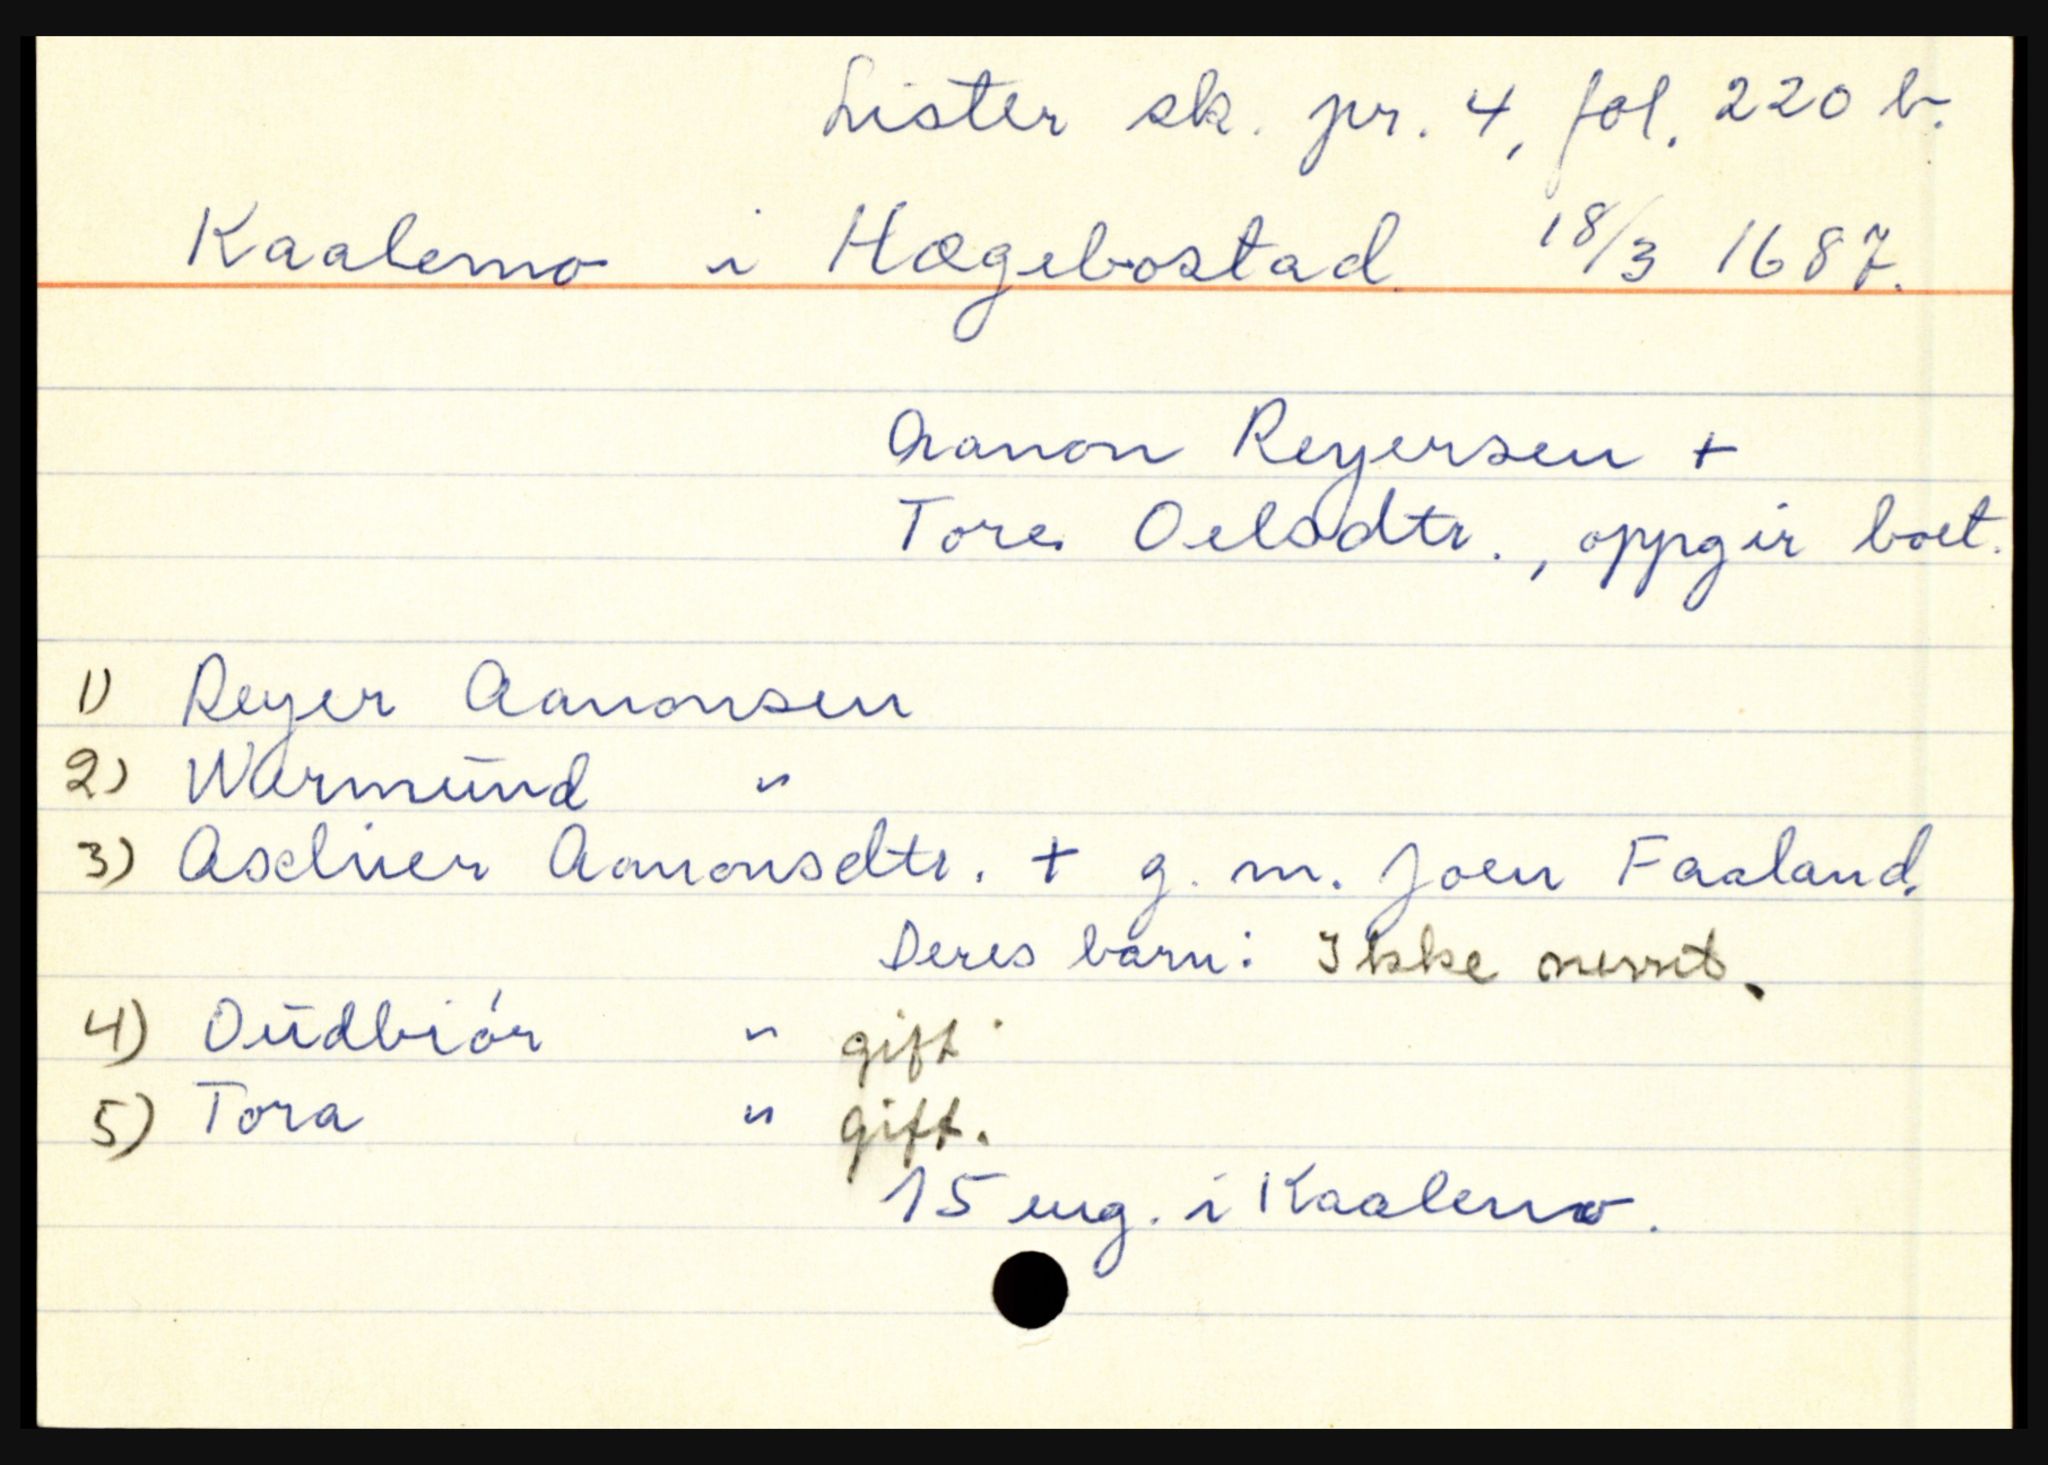 Lister sk. pr. 4, fol. 220 b.
Kaalemo i Hægebostad 18/3 1687.
Aanon Reyersen +
Tore Oelsdtr., oppgir boet.
1) Reyer Aanonsen
2) Warmünd "
3) Aschier Aanonsdtr. + g. m. Joen Faaland.
Deres barn: Ikke nevnt.
4) Oüdbiór " gift.
5) Tora " gift.
15 eng. i Kaalemo.